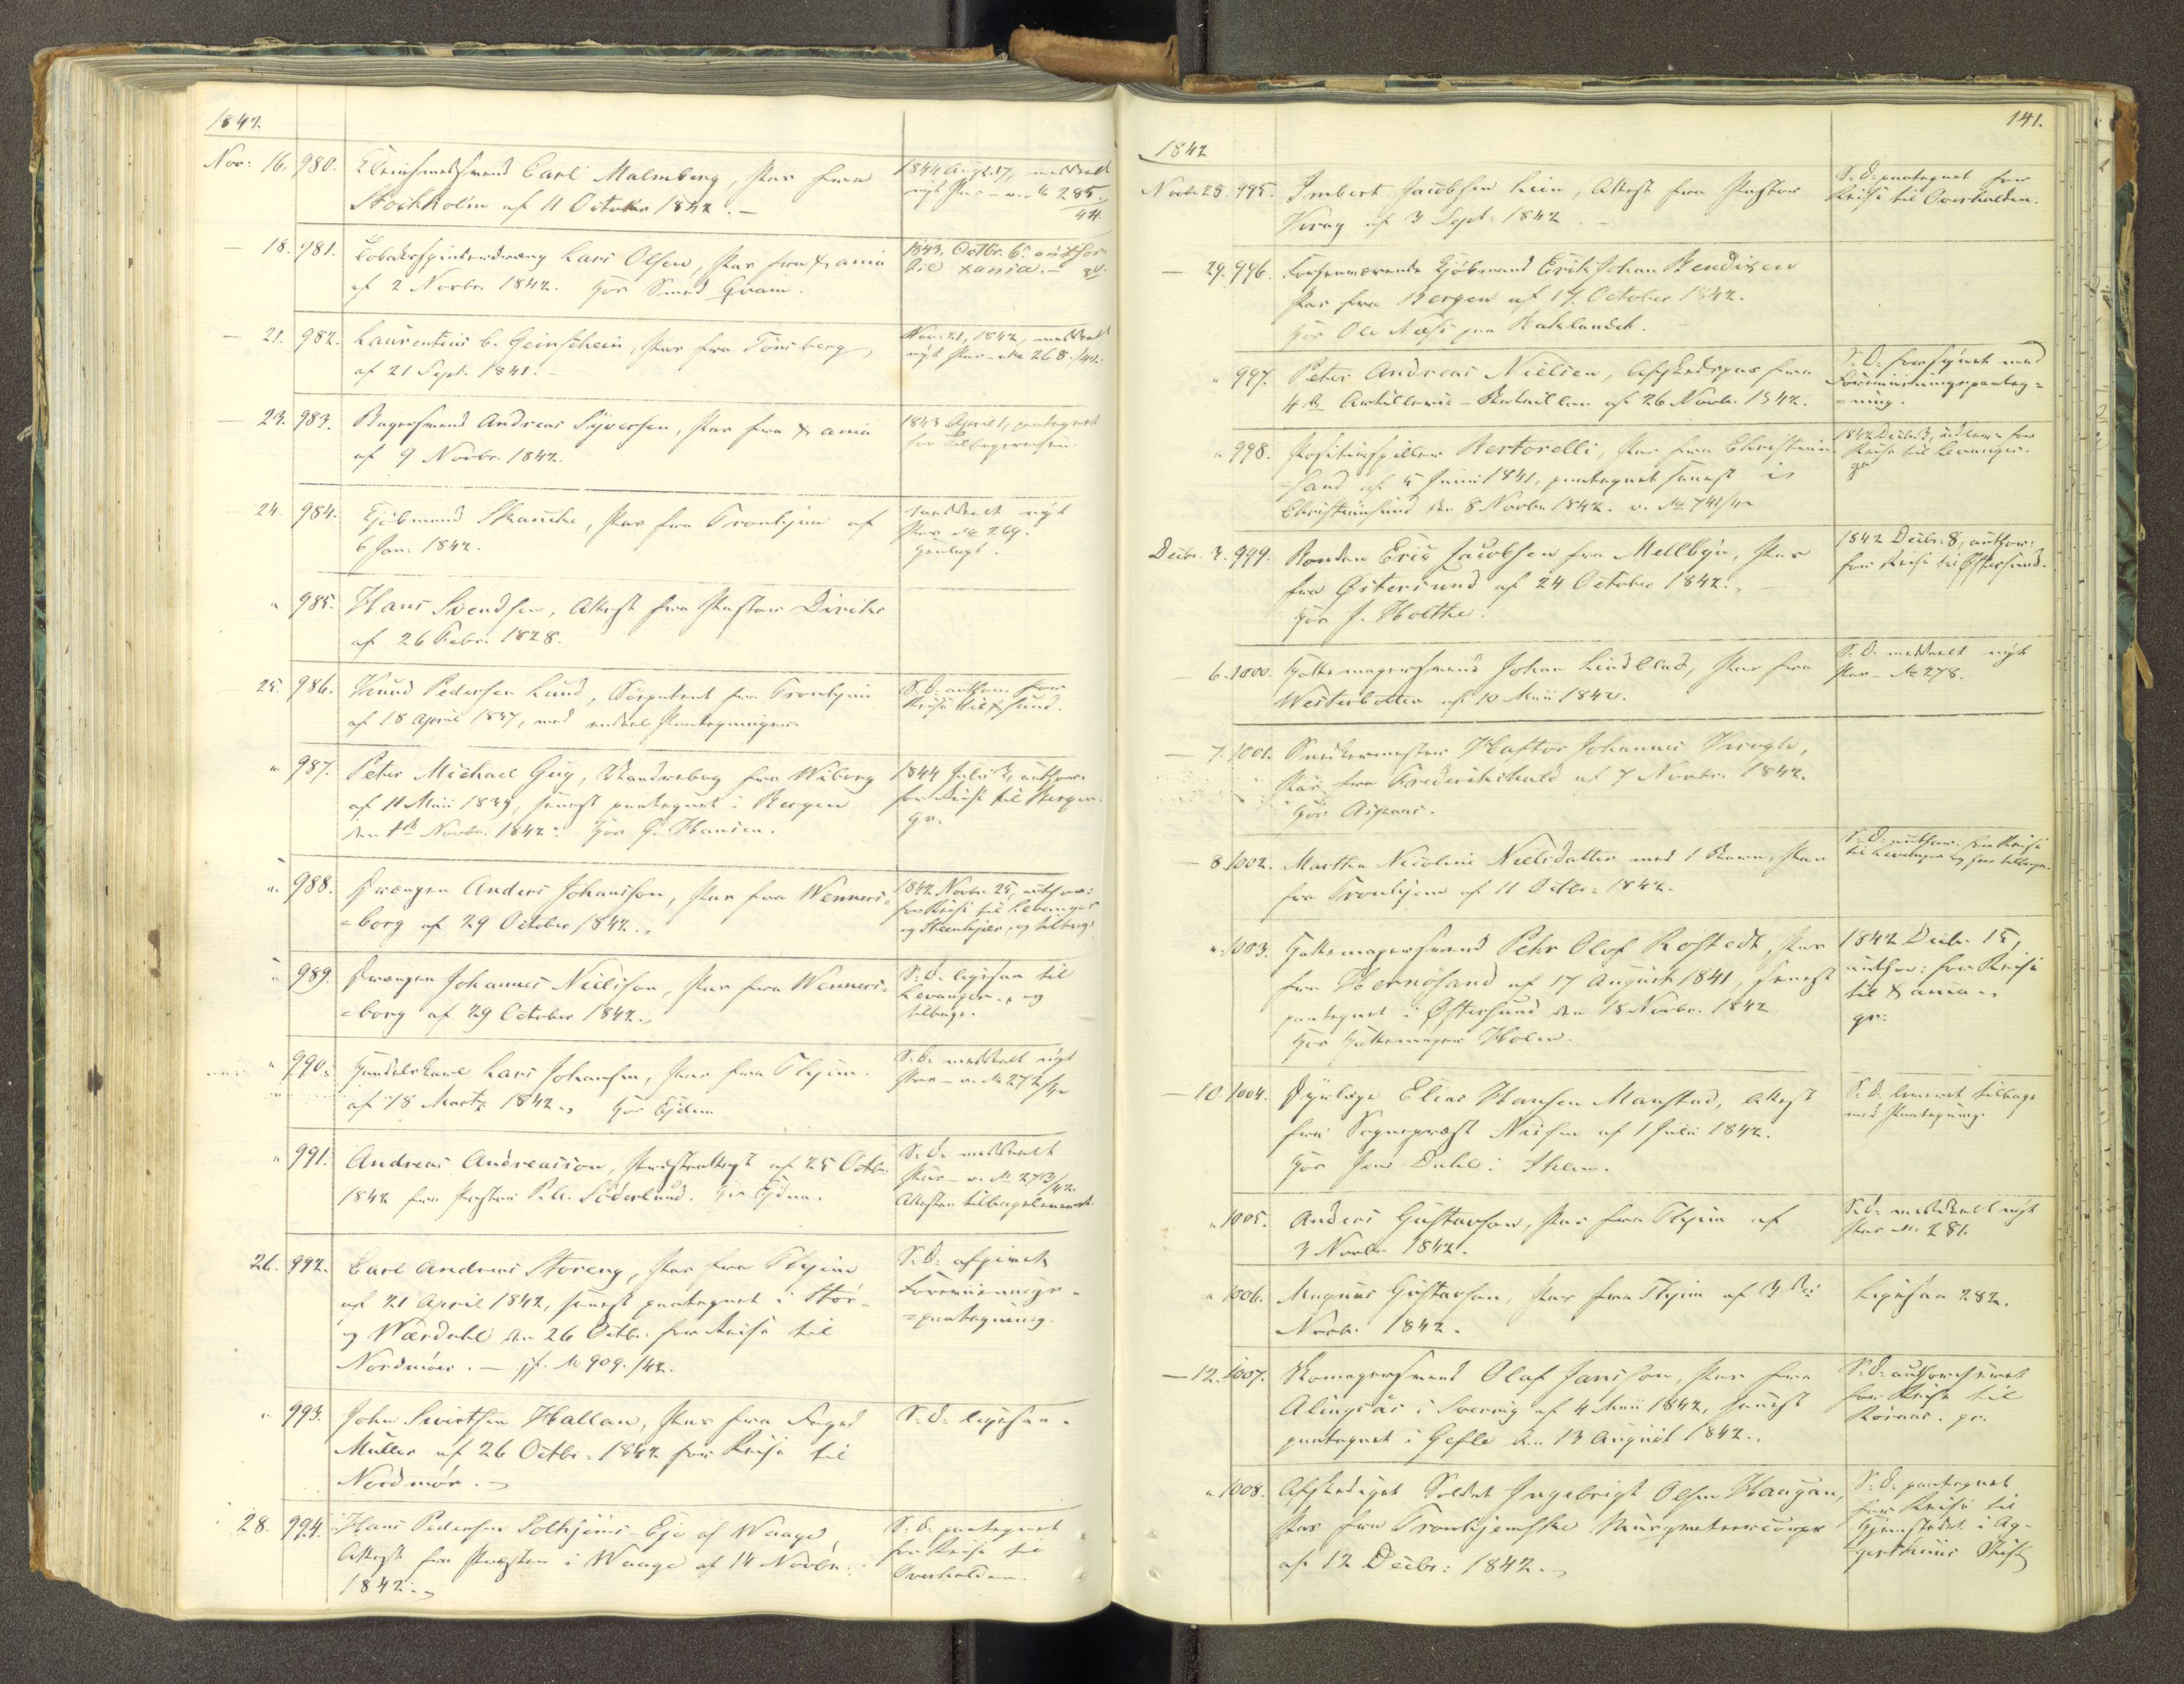 1842
Nov: 16. 980. Kleinsmedsvend Carl Malmberg, Pas fra
Stockholm af 11 October 1842. —
1844 Augt. 17, meddelt
nyt Pas - No 285/44
— 18. 981. Tobakspinderdreng Lars Olsen, Pas fra Xania
af 2 Novbr. 1842. hos Smed Gram.
1843. Octbr. 6.
til Xania. —
— 21. 982. Laurentius C. Geinschein, Pas fra Tönsberg,
af 21 Sept. 1841. —
Nov. 21, 1842, meddelt
nyt Pas - No 268/42.
— 23. 983. Bagersvend Andreas Syversen, Pas fra Xania
af 9 Novbr. 1842.
1843 April 1, paategnet
for Tilbagereisen
— 24. 984. Kjöbmand Skancke, Pas fra Tronhjem af
6 Jan. 1842.
meddelt nyt
Pas No 269.
henlagt.
" 985. Hans Svendsen, Attest fra Pastor
af 26 Febr. 1828.
25. 986. Knud Pedersen Lund, fra Tronhjem
af 18 April 1837, med endeel Paategninger
S. D. author. for
Reise til Xsund.
" 987. Peter Michael Guy, Vandrebog fra Wiborg
af 11 Mai 1839, senest paategnet i Bergen
den 1ste Novbr. 1842. hos G. Hansen.
1844 Juli, author.
for Reise til Bergen.
gr.
" 988. Drengen Anders Johansson, Pas fra Wenners=
=borg af 29 October 1842.
1842 Novbr. 25, author:
for Reise til Levanger
og Steenkjær, og tilbage
" 989. Drengen Johannes Nielsson, Pas fra Wenners=
=borg af 29 October 1842.
S. D. ligesaa til
Levanger, og
tilbage.
" 990. Handelskarl Lars Johansen, Pas fra Thjem
af 18 Marts 1842. hos Gjdem
S. D. meddelt nyt
Pas - No 272/42
" 991. Andreas Andreasson, Præsteattest af 25 Octbr.
1842 fra Pastor P. A. Söderlund.
S. D. meddelt
Pas - No 273/42.
Attesten tilbageleveret.
26. 992. Carl Andreas Storeng, Pas fra Thjem
af 21 April 1842, senest paategnet i Stör-
og Værdahl den 26 Octbr. for Reise til
Nordmöer. — jf. No 909./42.
S. D. afgivet
Foreviisnings-
=paategning.
" 993. John Sivertsen Hallan, Pas fra Foged
Müller af 26 Octbr. 1842 for Reise til
Nordmör. —
S. D. ligesaa.
28. 994. Hans Pedersen Solhjems-Eje af Waage
Attest fra Præsten i Waage af 14 Novbr.
1842.
S. D. paategnet
for Reise til
Overhalden.
141.
1842
Novbr 28. 995. Imbert Jacobsen Lien, Attest fra Pastor
Krag af 3 Sept. 1842.
S. D. paategnet for
Reise til Overhalden.
— 29. 996. Forhenværende Kjöbmand Erik Johan Bendixen
Pas fra Bergen af 17. October 1842.
hos Ole Næss paa Baklandet.
" 997. Peter Andreas Nielsen, Afskedspas fra
4de Artillerie-Bataillon af 26 Novbr. 1842.
S. D. forsynet med
Foreviisningspaateg=
=ning.
" 998. Positivspiller Bertorelli, Pas fra Christian
sand af 5 Juni 1841, paategnet senest i
Christiansund den 8 Novbr. 1842. v. No 741/42
1842 Decbr. 3, for
Reise til Levanger.
gr
Decbr. 3. 999. Bonden Eric Jacobsen fra Mellbyn, Pas
fra Östersund af 24 October 1842.
hos J. Holthe.
1842 Decbr. 8, author:
for Reise til Östersund.
— 6. 1000. Hattemagersvend Johan Lindblad, Pas fra
Westerbotten af 10 Mai 1842.
S. D. meddelt nyt
Pas - No 278.
— 7. 1001. Snedkermester Haftor Johannes Krogh,
Pas fra Frederikshald af 7 Novbr. 1842.
hos Aspaas.
— 8. 1002. Martha Nicoline Nielsdatter med 1 Barn, Pas
fra Tronhjem af 11 Octbr. 1842.
S. D. author. for Reise
til Levanger og her tilbage.
" 1003. Hattemagersvend Pehr Olof Rostedt, Pas
fra Hernösand af 17 August 1841, senest
paategnet i Östersund den 18 Novbr. 1842
hos Hattemager Holm.
1842 Decbr. 15,
author: for Reise
til Xania.
gr.
— 10. 1004. Dyrlæge Elias Hansen Manstad, Attest
fra Sogneprest Nissen af 1 Juli 1842.
hos Jens Dahl i Ihlen.
S. D. leveret tilbage
med Paategning.
" 1005. Anders Gustavson, Pas fra Thjem af
3 Novbr. 1842.
S. D. meddelt nyt
Pas No. 281.
" 1006. Magnus Gustavson, Pas fra Thjem af 3 Ds
Novbr. 1842.
Ligesaa 282.
— 12. 1007. Skomagersvend Olaf Jansson, Pas fra
Alingsås i Sverrig af 4 Mai 1842, senest
paategnet i Gefle den 13 August 1842.
S. D. authoriseret
for Reise til
Röraas. gr.
" 1008. Afskediget Soldat Ingebrigt Olsen Haugan,
Pas fra Tronhjemske Musqueteercorps
af 12 Decbr: 1842.
S. D. paategnet
for Reise til
Hjemstedet i Ag-
gershuus Stift